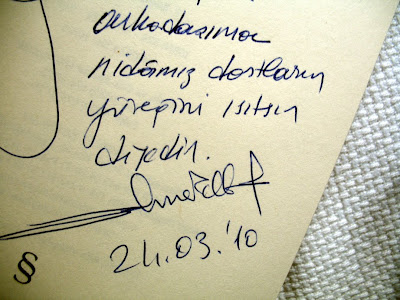 arkadaşıma
nidâmız dostların
yüreğini ısıtsın
diyedir.
24.03.'10
§